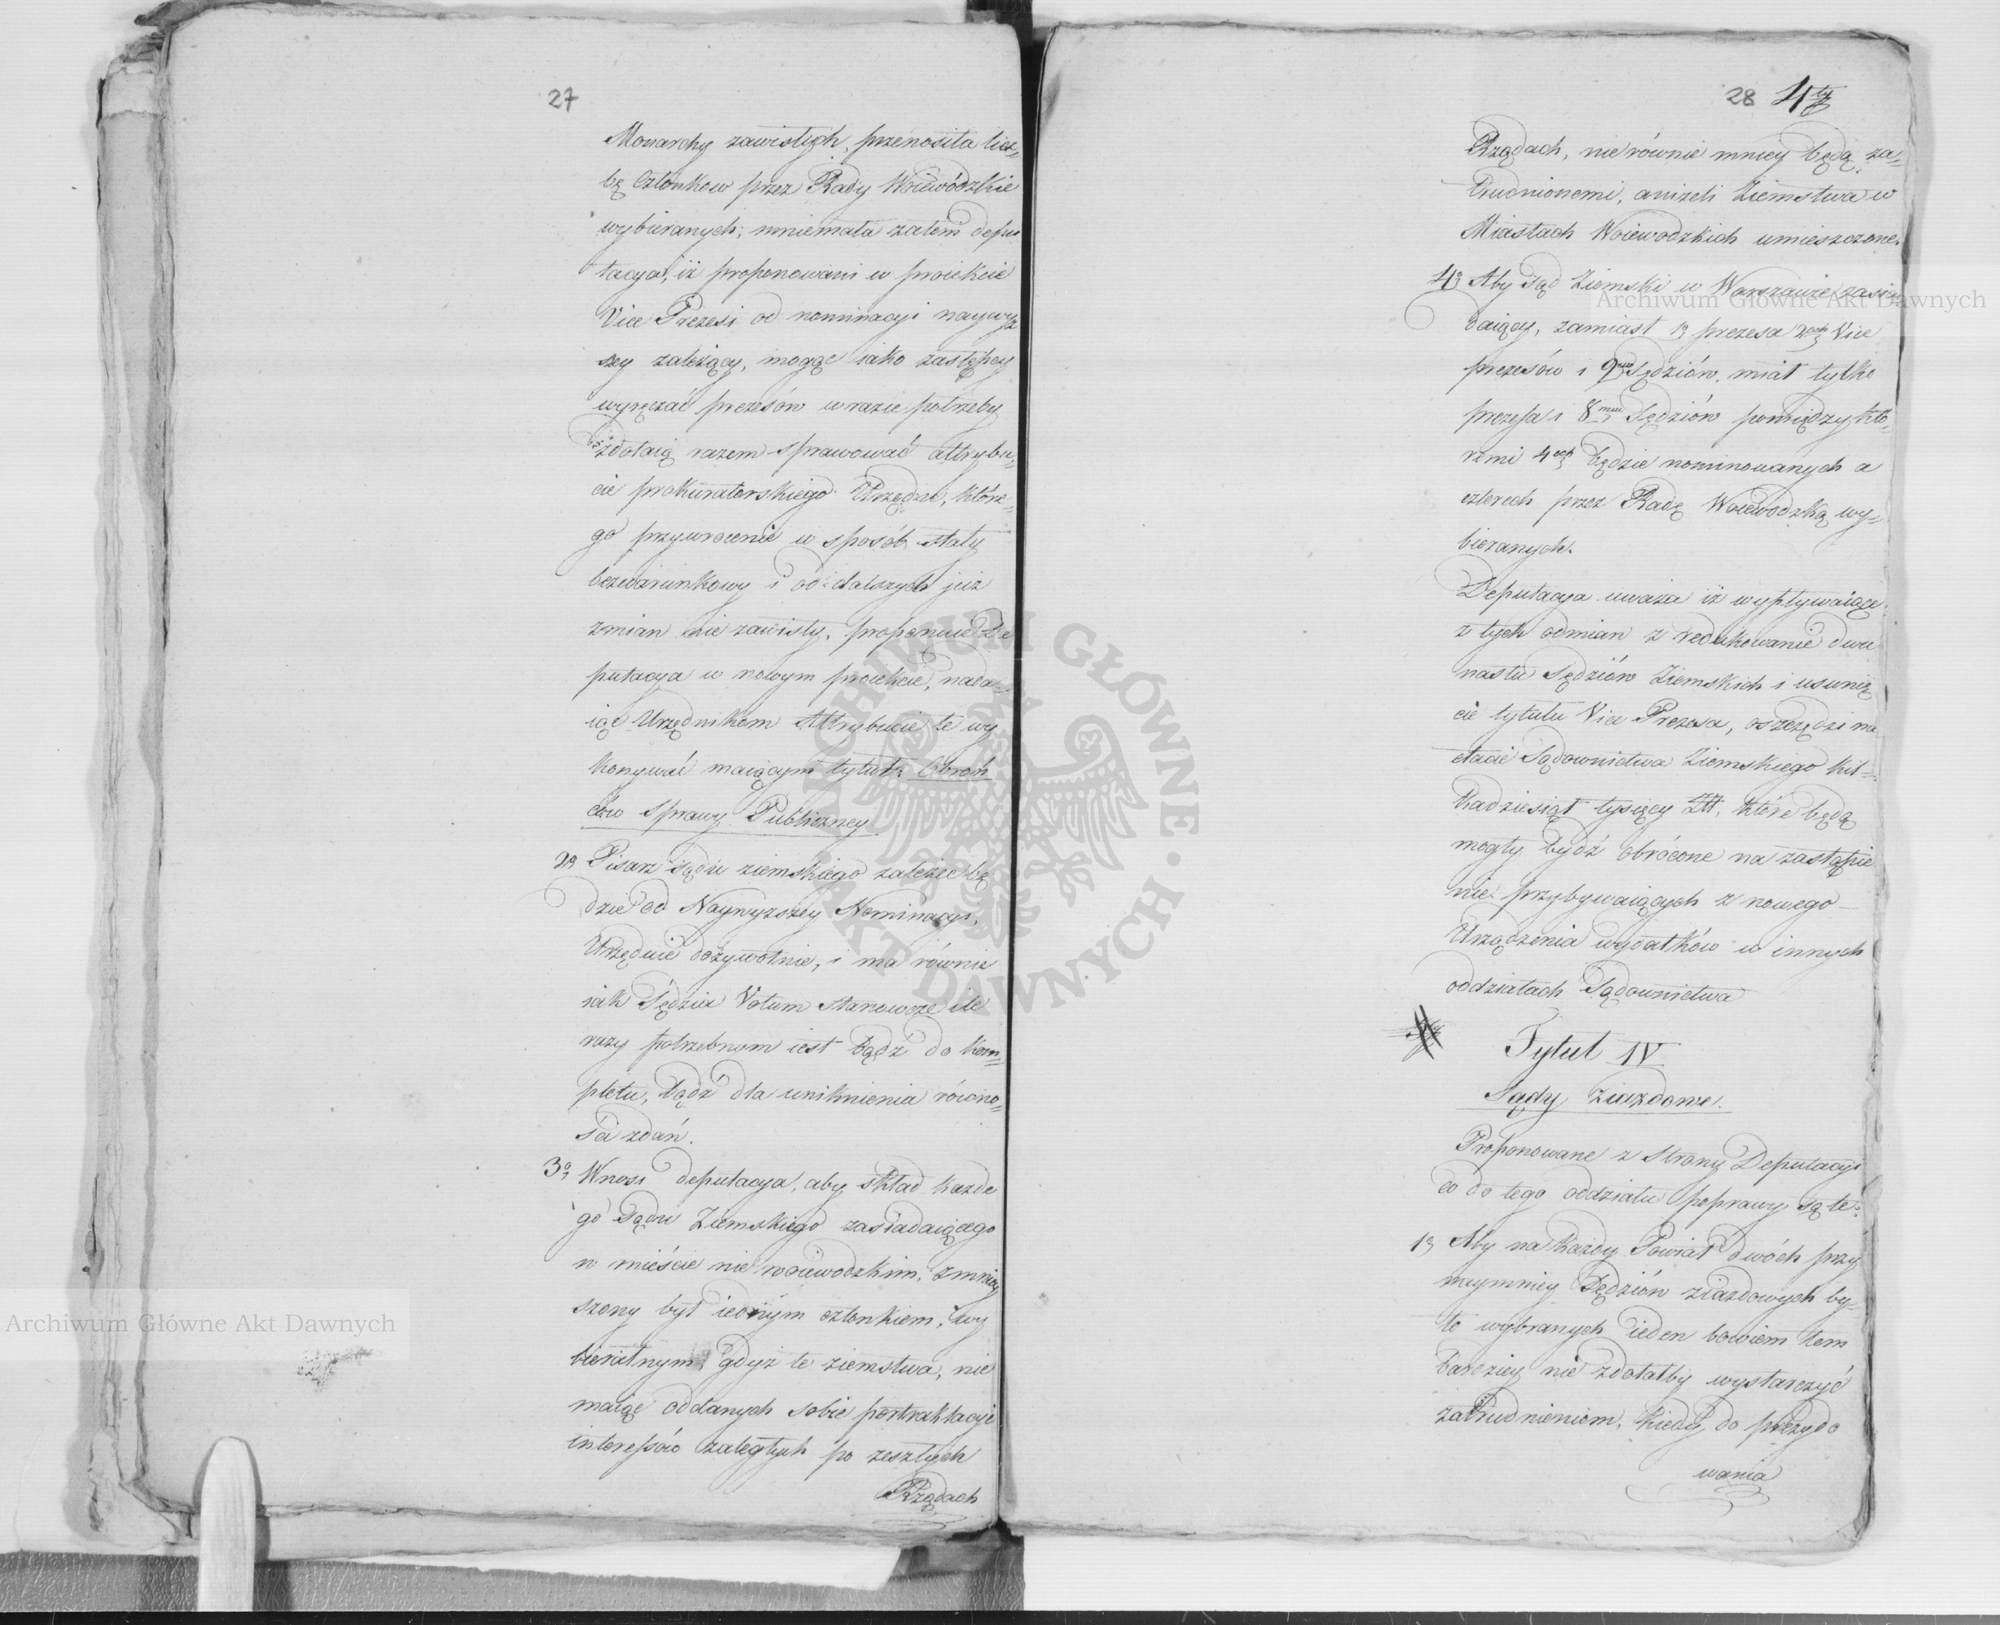 27
Monarchy zawisłych, przenosiła licz=
bę Członkow przez Rady Woiewódzkie
wybieranych; mniemała zatem depu
tacya, iż proponowani w proiekcie
Vice Prezesi od nominacyi naywyż
szey zależący, mogąc iako zastępcy
wyręczać prezesów w razie potrzeby
zdołaią razem sprawować attrybu=
cie prokuratorskiego Urzędu, które=
go przywrocenie w sposób stały
bezwarunkowy i od dalszych już
zmian nie zawisły, proponuie De
putacya w nowym proiekcie, nada=
iąc Urzędnikom Attrybucie te wy
konywać maiącym tytuł: Obroń
ców Sprawy Publiczney
2º Pisarz Sądu ziemskiego zależeć bę
dzie od Naywyższey Nominacyi,
Urzęduie dożywotnie, i ma równie
iak Sędzia Votum stanowcze ile
razy potrzebnem iest bądź do kom=
pletu, bądź dla uniknienia równo=
ści zdań.
3º Wnosi deputacya, aby skład każde
go Sądu Ziemskiego zasiadaiącego
w mieście nie woiewodzkim, zmniey
szony był iednym członkiem, wy
bieralnym, gdyż te ziemstwa, nie
maiąc oddanych sobie pertraktacyi
interessów zaległych po zeszłych
Rządach
28 4ty
Rządach, nierównie mniey będą za=
trudnionemi, aniżeli Ziemstwa w
Miastach Woiewodzkich umieszczone.
4º Aby Sąd Ziemski w Warszawie zasia
daiący, zamiast 1º prezesa 2ch Vice
prezesów i 9 Sędziów, miał tylko
prezesa i 8miu Sędziów pomiędzy któ=
remi 4ech będzie nominowanych a
czterech przez Radę Woiewodzką wy=
bieranych.
Deputacya uważa iż wypływaiące
z tych odmian zredukowanie dwu
nastu Sędziów Ziemskich i usunię
cie tytułu Vice Prezesa, oszczędzi na
etacie Sądownictwa Ziemskiego kil=
kadziesiąt tysięcy Złł, które będą
mogły bydź obrócone na zastąpie
nie przybywaiących z nowego
Urządzenia wydatków w innych
oddziałach Sądownictwa
Tytuł IV
Sądy Ziazdowe.
Proponowane z strony Deputacyi
co do tego oddziału poprawy są te:
1º Aby na każdy Powiat dwóch przy
naymniey Sędziów ziazdowych by=
ło wybranych ieden bowiem tem
bardziey nie zdołałby wystarczyć
zatrudnieniom, kiedy do prezydo
wania
Archiwum Główne Akt Dawnych
Archiwum Główne Akt Dawnych
ARCHIWUM GŁÓWNE AKT DAWNYCH